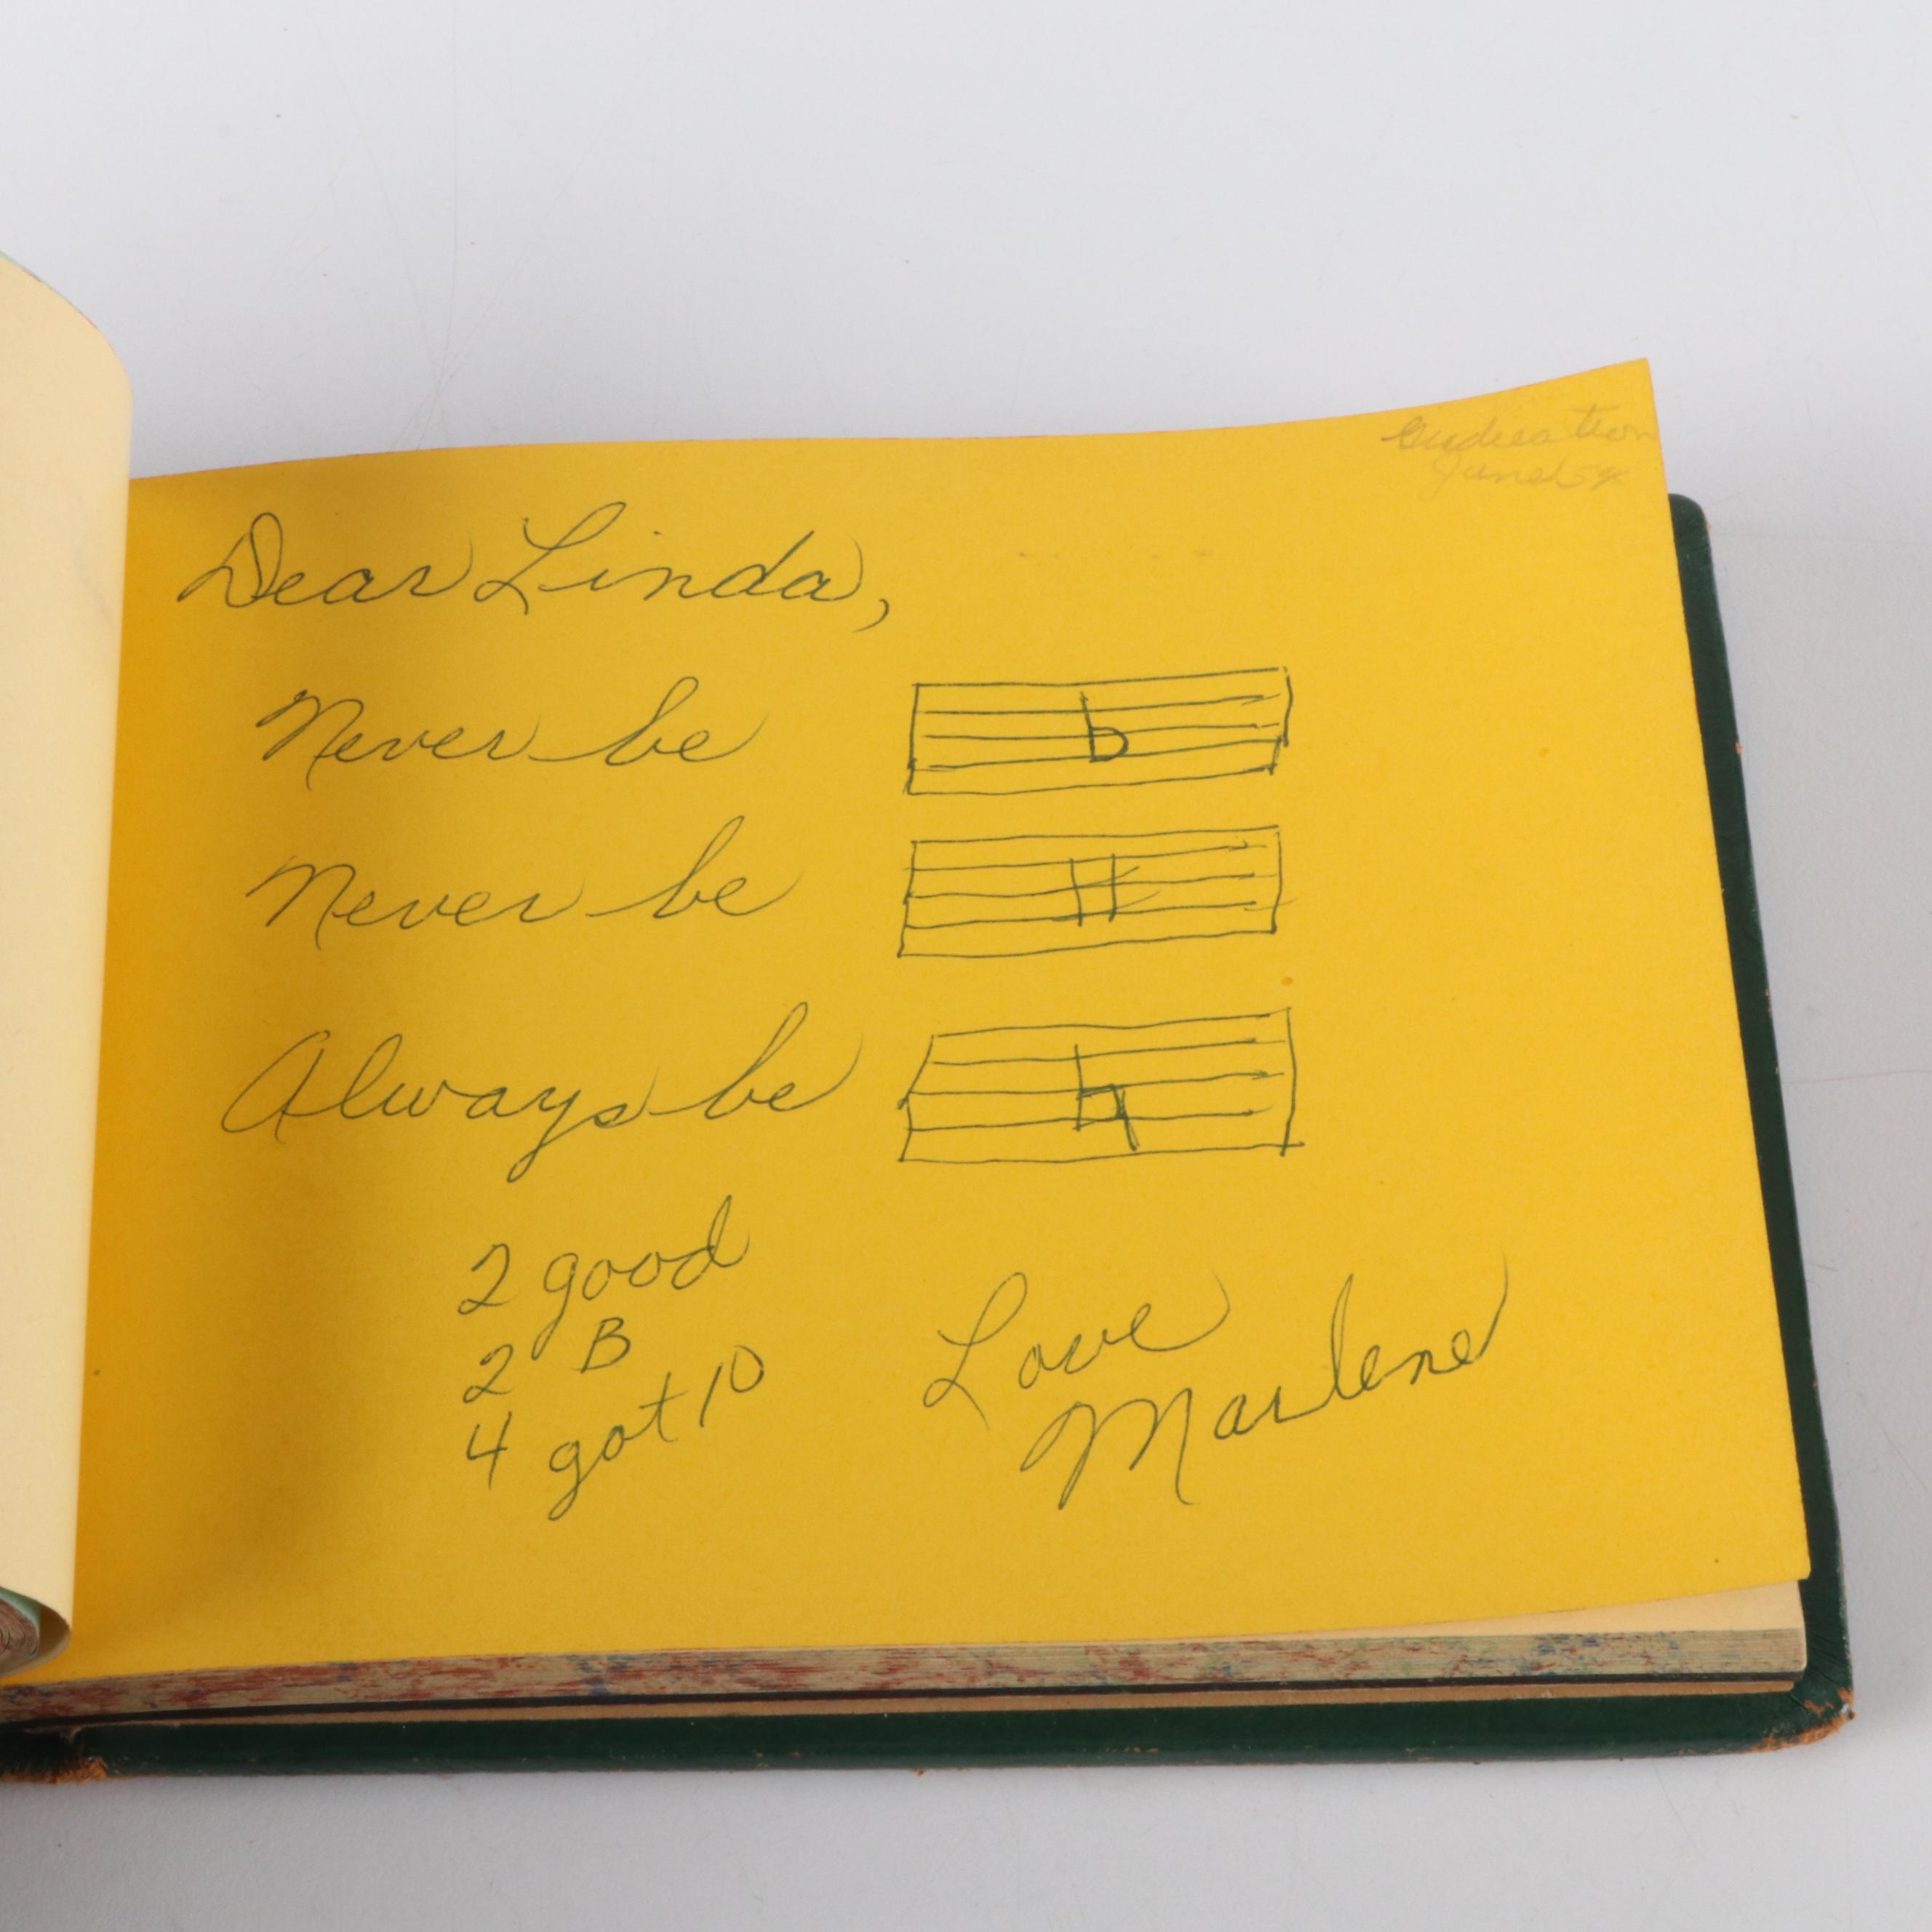 June 54
Dear Linda,
Never be ♭
Never be ♯
Always be ♮
2 good
2 B
4 got 10
Love
Marlene